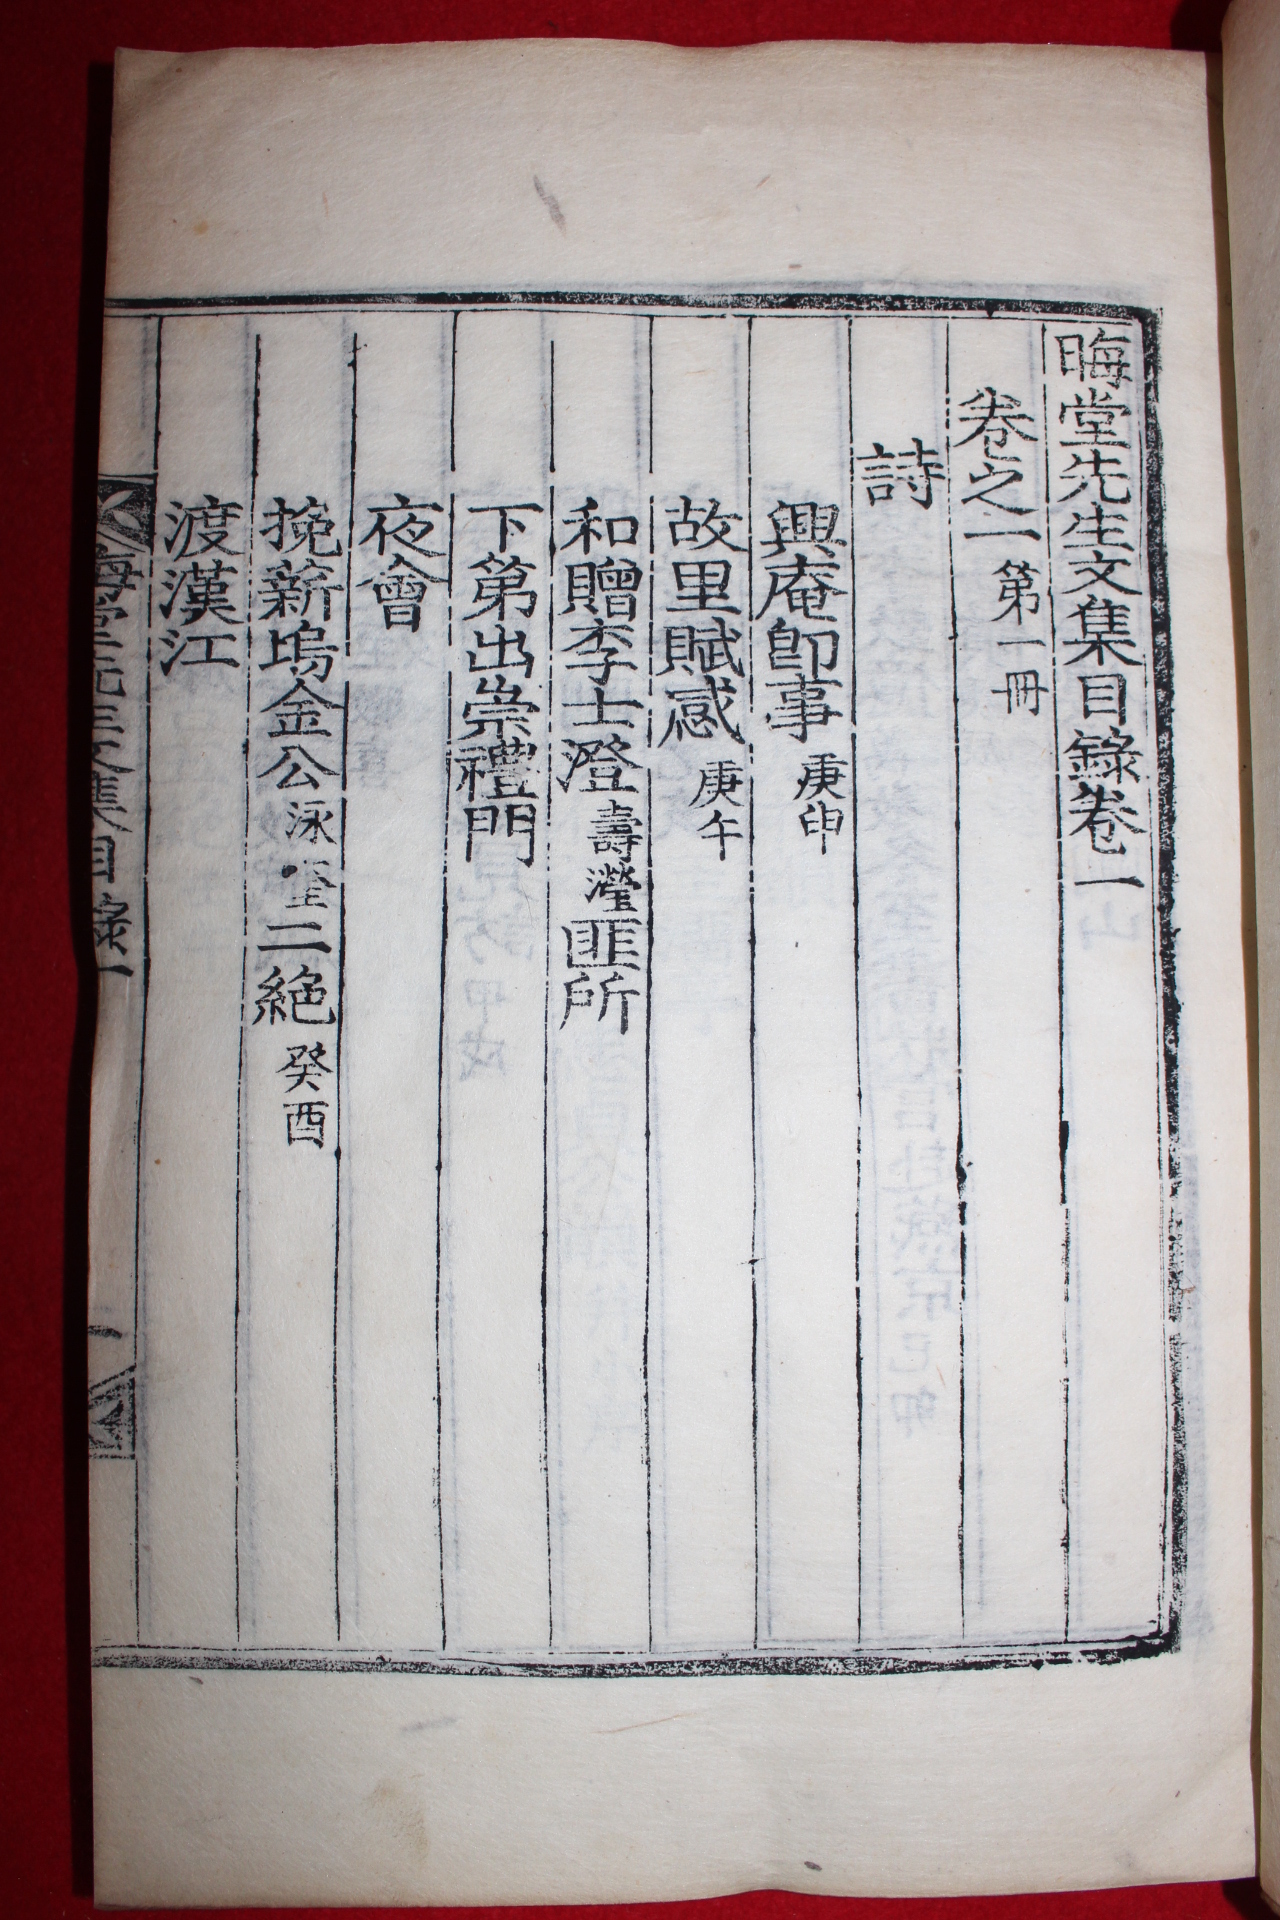 晦堂先生文集目錄卷一
卷之一 第一冊
詩
興庵卽事 庚申
故里賦感 庚午
和贈李士澄 壽瀅 匪所
下第出崇禮門
夜會
挽薪塢金公 泳奎 二絶 癸酉
渡漢江
晦堂先生文集目錄一